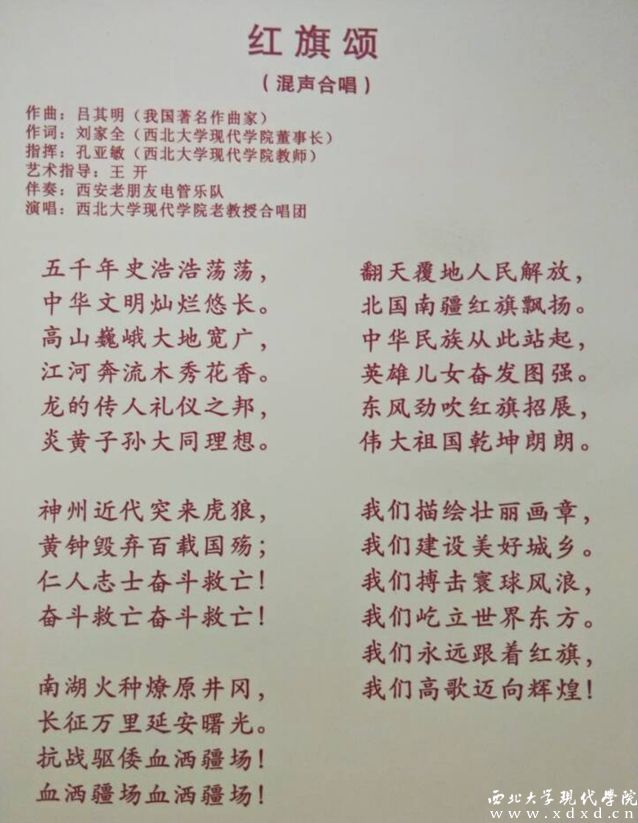 红旗颂
（混声合唱）
作曲：吕其明（我国著名作曲家）
作词：刘家全（西北大学现代学院董事长）
指挥：孔亚敏（西北大学现代学院教师）
艺术指导：王 开
伴奏：西安老朋友电管乐队
演唱：西北大学现代学院老教授合唱团
五千年史浩浩荡荡，
中华文明灿烂悠长。
高山巍峨大地宽广，
江河奔流木秀花香。
龙的传人礼仪之邦，
炎黄子孙大同理想。
神州近代突来虎狼，
黄钟毁弃百载国殇；
仁人志士奋斗救亡！
奋斗救亡奋斗救亡！
南湖火种燎原井冈，
长征万里延安曙光。
抗战驱倭血洒疆场！
血洒疆场血洒疆场！
翻天覆地人民解放，
北国南疆红旗飘扬。
中华民族从此站起，
英雄儿女奋发图强。
东风劲吹红旗招展，
伟大祖国乾坤朗朗。
我们描绘壮丽画章，
我们建设美好城乡。
我们搏击寰球风浪，
我们屹立世界东方。
我们永远跟着红旗，
我们高歌迈向辉煌！
西北大学现代学院
www.xdxd.cn